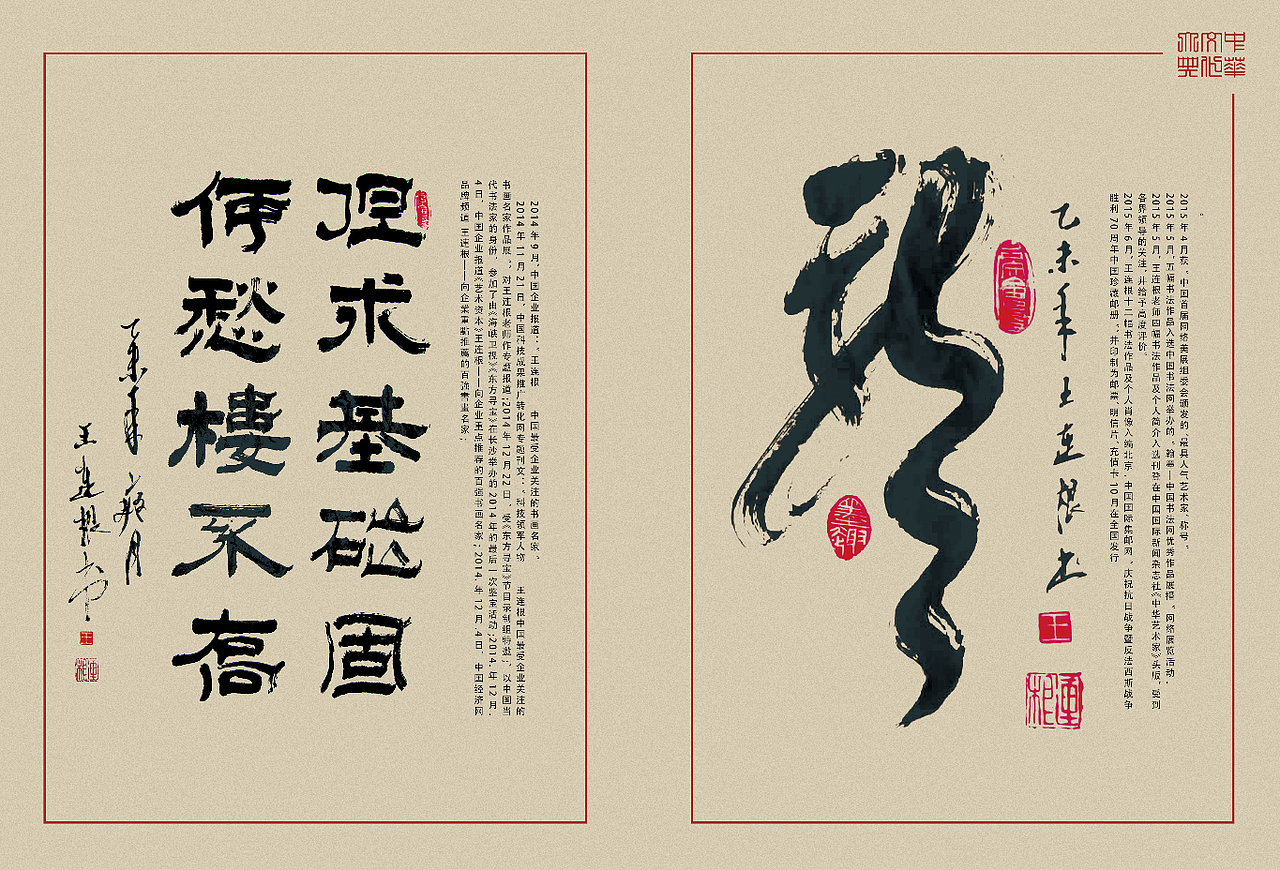 中華文化大典
2015 年 4 月获：中国首届网络美展组委会颁发的“最具人气艺术家”称号。
2015 年 5 月，五幅书法作品入选中国书法网举办的“翰墨—中国书法网优秀作品展播”网络展览活动.
2015 年 5 月，王连根老师四幅书法作品及个人简介入选刊登在中国国际新闻杂志社《中华艺术家》头版，受到
各界领导的关注，并给予高度评价.
2015 年 6 月，王连根十二幅书法作品及个人肖像入编北京.中国国际集邮网“庆祝抗日战争暨反法西斯战争
胜利 70 周年中国珍藏邮册”，并印制为邮票、明信片、充值卡 10 月在全国发行
乙未年王连根书
王
连根
2014 年 9 月，中国企业报道：“王连根——中国最受企业关注的书画名家”。
2014 年 11 月 21 日，中国科技成果推广转化网专题刊文：“科技领军人物——王连根中国最受企业关注的
书画名家作品展”，对王连根老师作专题报道;2014 年 12 月 22 日，受《东方寻宝》节目录制组特邀，以中国当
代书法家的身份，参加了由《海峡卫视》《东方寻宝》在长沙举办的 2014 年的最后一次鉴宝活动;2014.年 12 月.
4 日，中国企业报道《艺术资本》王连根——向企业重点推荐的百强书画名家；2014.年 12 月 .4 日，中国经济网
品牌频道 王连根——向企业重点推荐的百强书画名家；
但求基础固
何愁樓不高
乙未年 月
王连根书
王
连根